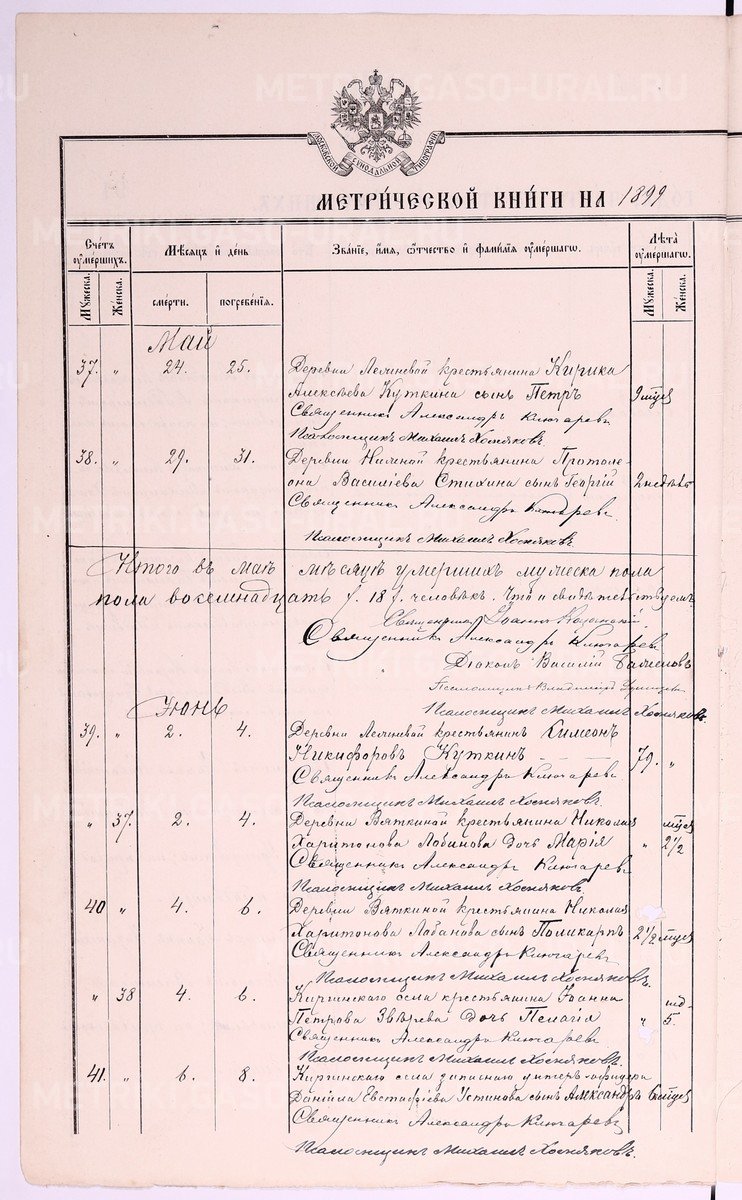 METRICAGASO-URAL.RU
МОСКОВСКОЙ СѴНОДАЛЬНОЙ ТИПОГРАФІИ
МЕТРИЧЕСКОЙ КНИГИ НА 1899
Счетъ оумершихъ. Мѣсяцъ и день Званіе, имя, отчество и фамилія оумершагѡ. Лѣта оумершагѡ.
Мужеска. Женска. смерти. погребенія. Мужеска. Женска.
Май
37. " 24. 25. Деревни Лелиневой крестьянина Кирика
Алексѣева Куткина сынъ Петръ 9 мцев
Священникъ Александръ Ключаревъ
Псаломщикъ Михаилъ Хосняковъ
38. " 29. 31. Деревни крестьянина Протоле-
она Василіева Стихина сынъ Георгій 2 недѣль
Священникъ Александръ Ключаревъ
Псаломщикъ Михаилъ Хосняковъ
Итого въ маѣ мѣсяцѣ умершихъ мужеска пола
пола восемнадцать /. 18 /. человѣкъ. Что и свидѣтельствуемъ
Священникъ Іоаннъ
Священникъ Александръ Ключаревъ
Діаконъ Василій
Псаломщикъ Владимиръ
Псаломщикъ Михаилъ Хосняковъ
Іюнь
39. " 2. 4. Деревни Лелиневой крестьянинъ Симеонъ
Никифоровъ Куткинъ 79. "
Священникъ Александръ Ключаревъ
Псаломщикъ Михаилъ Хосняковъ
" 37. 2. 4. Деревни Вяткиной крестьянина Николая мцев
Харитонова Лобанова дочь Марія " 2 1/2
Священникъ Александръ Ключаревъ
Псаломщикъ Михаилъ Хосняковъ
40 " 4. 6. Деревни Вяткиной крестьянина Николая
Харитонова Лобанова сынъ Поликарпъ 2 1/2 мцев
Священникъ Александръ Ключаревъ
Псаломщикъ Михаилъ Хосняковъ.
" 38 4. 6. Киргинскаго села крестьянина Іоанна
Петрова Звѣрева дочь Пелагія " 5.
Священникъ Александръ Ключаревъ
Псаломщикъ Михаилъ Хосняковъ.
41. " 6. 8. Киргинскаго села запаснаго унтеръ-офицера
Даніила Евстафіева Устинова сынъ Александръ 6 мцев
Священникъ Александръ Ключаревъ
Псаломщикъ Михаилъ Хосняковъ.